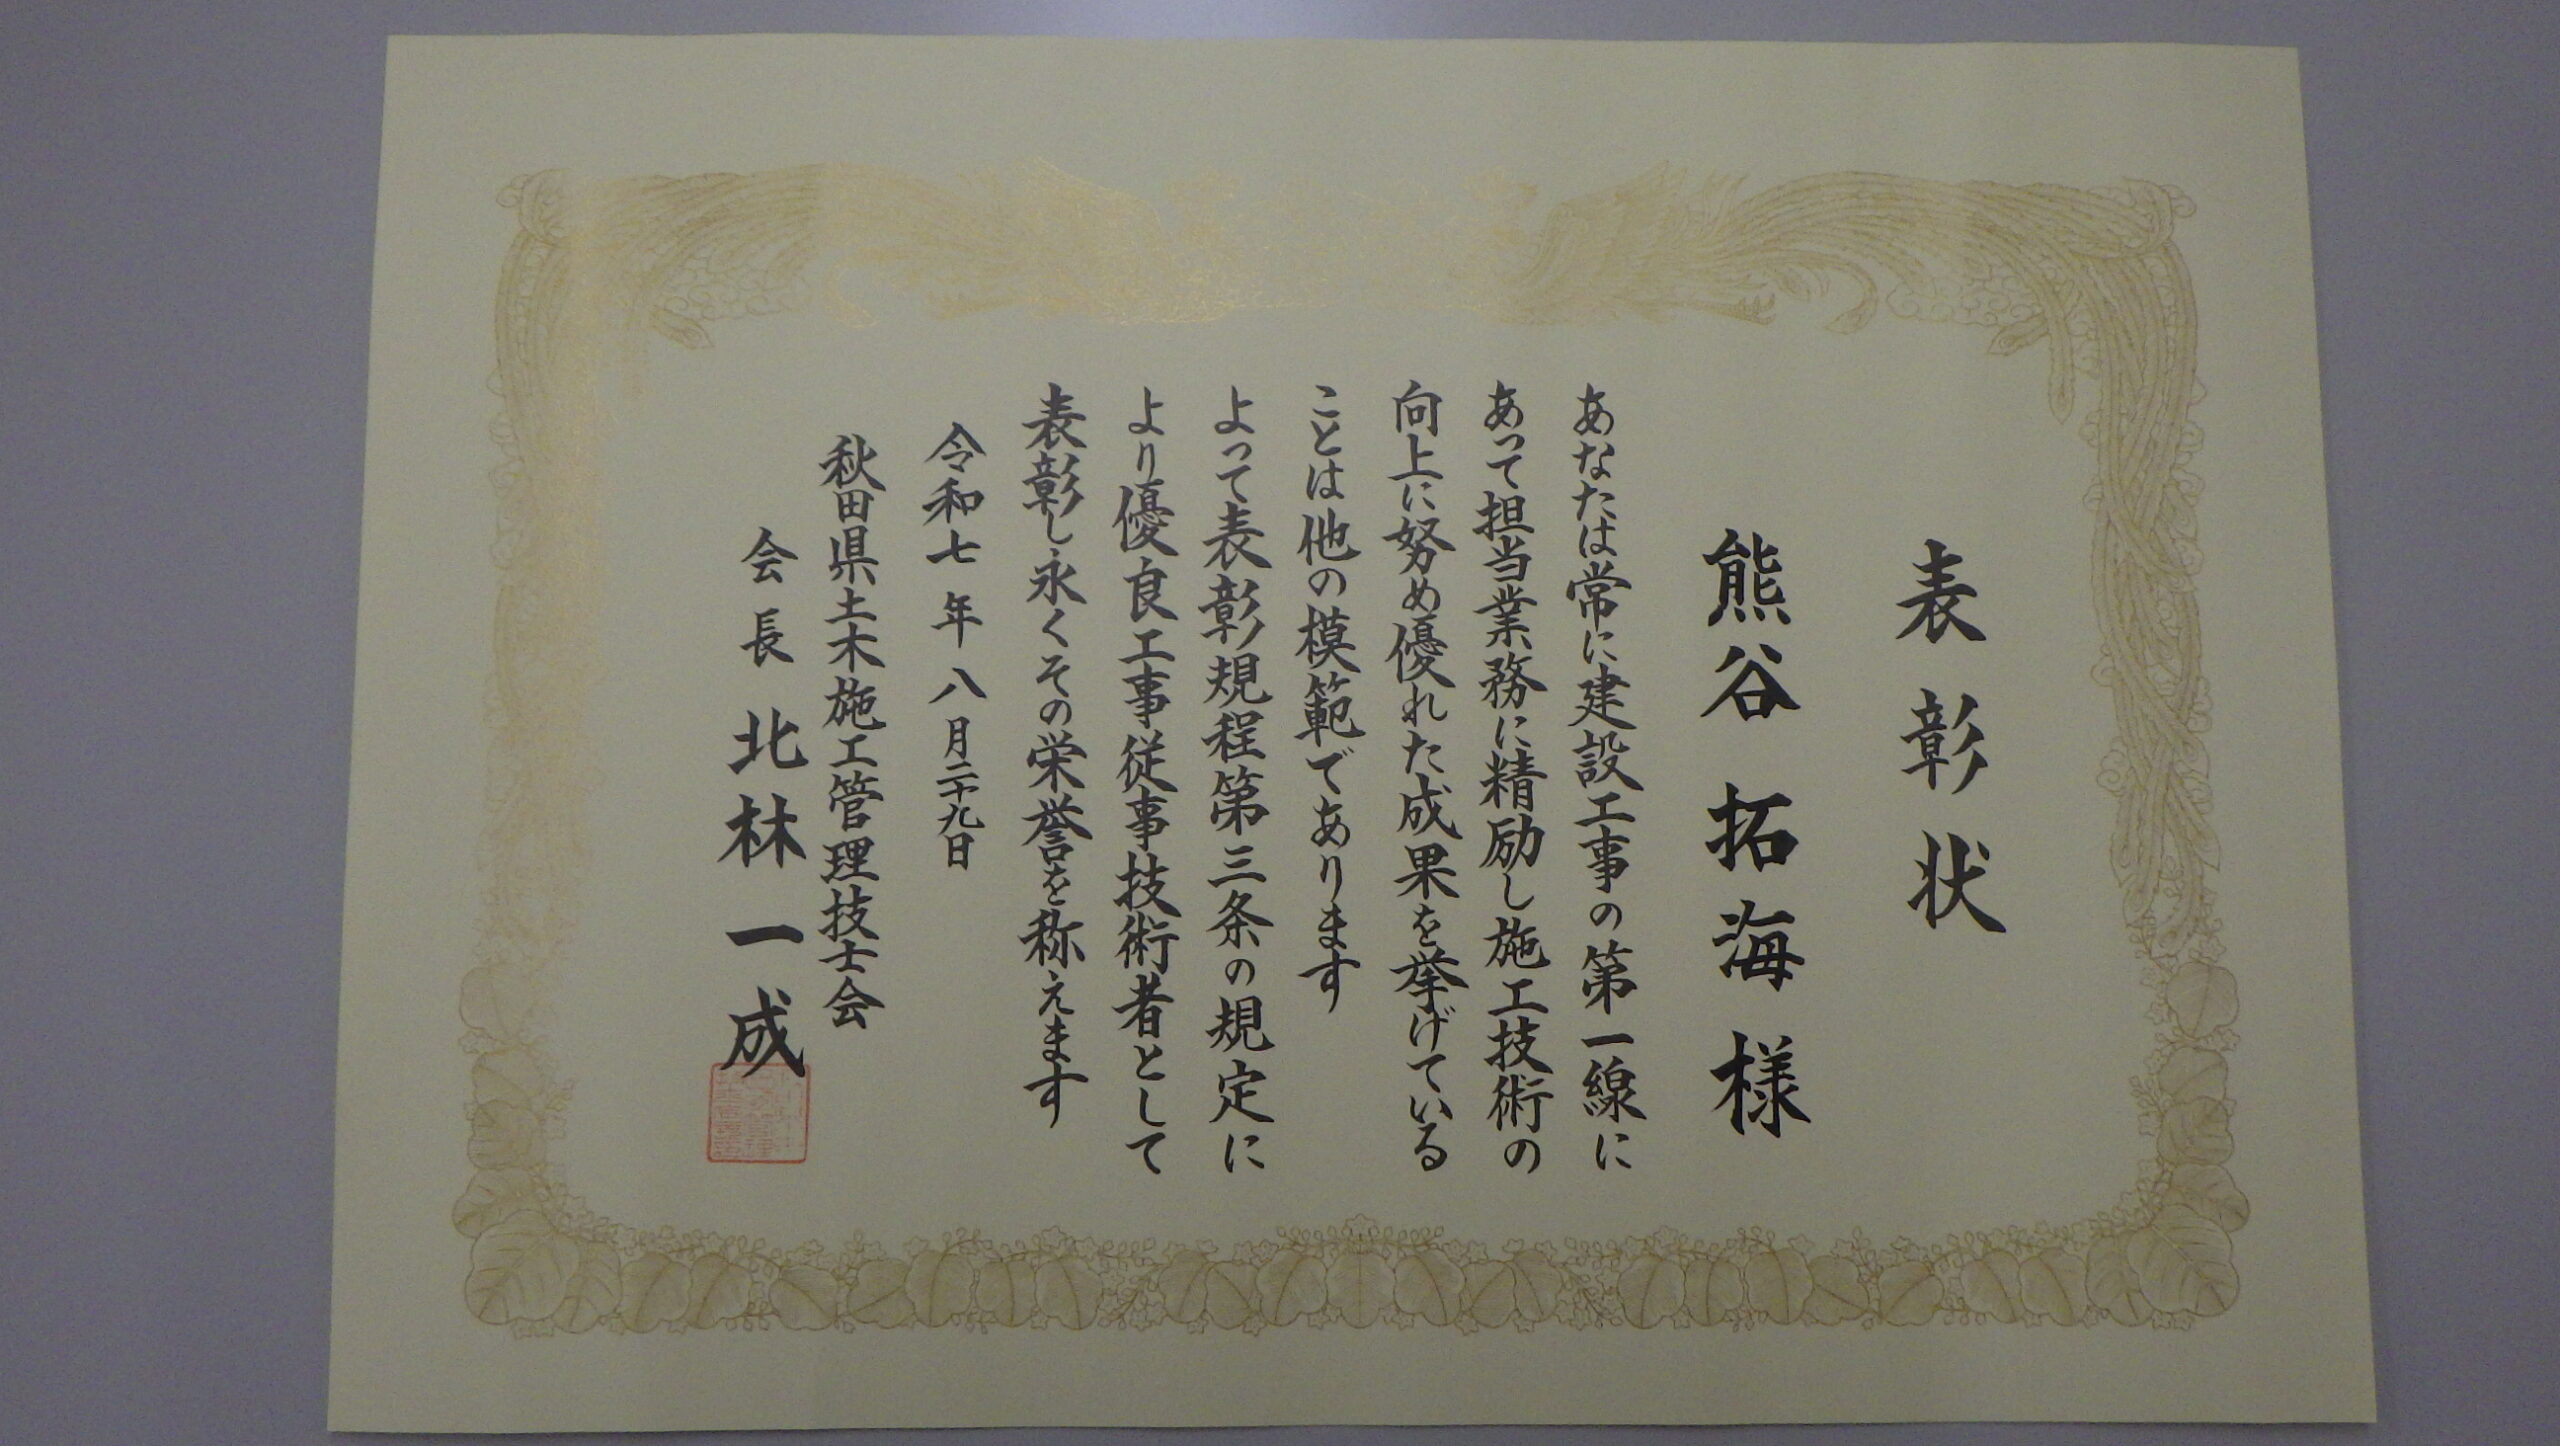 表彰状
熊谷拓海様
あなたは常に建設工事の第一線に
あって担当業務に精励し施工技術の
向上に努め優れた成果を挙げている
ことは他の模範であります
よって表彰規程第三条の規定に
より優良工事従事技術者として
表彰し永くその栄誉を称えます
令和七年八月二十九日
秋田県土木施工管理技士会
会長 北林一成